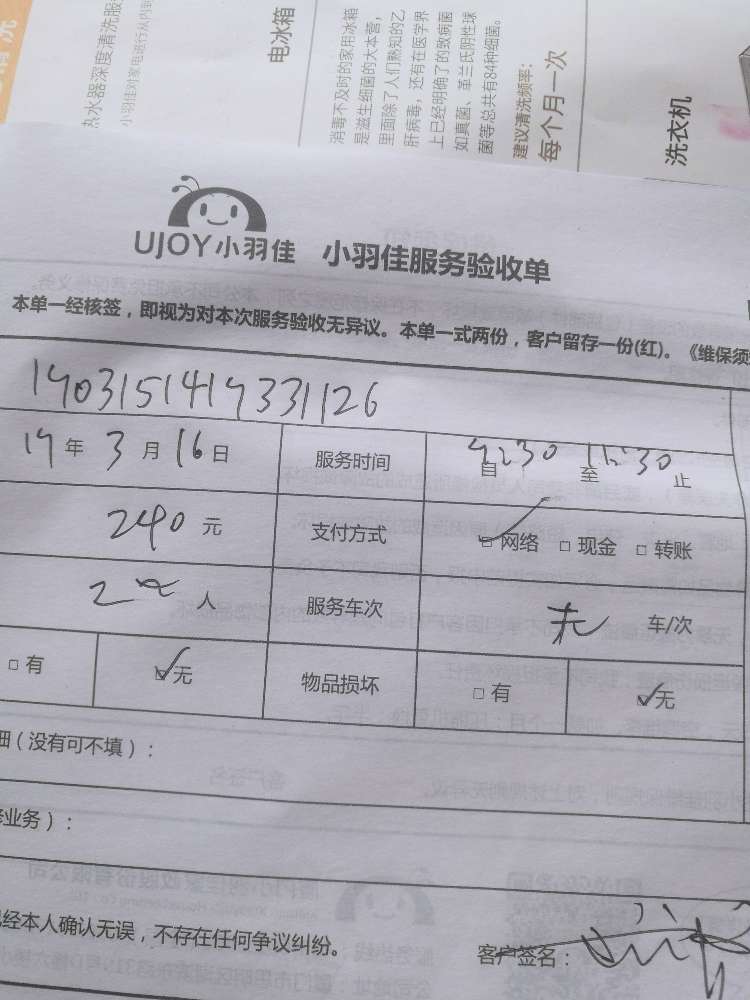 清洗
热水器深度清洗服
小羽佳对家电进行从内到
电冰箱
消毒不及时的家用冰箱
是滋生细菌的大本营，
里面除了人们熟知的乙
肝病毒，还有在医学界
上已经明确了的致病菌
如真菌、革兰氏阴性球
菌等总共有84种细菌。
建议清洗频率：
每个月一次
洗衣机
UJOY小羽佳 小羽佳服务验收单
本单一经核签，即视为对本次服务验收无异议。本单一式两份，客户留存一份(红)。《维保须
1903151419331126
19年3月16日 服务时间 自 至11:30止
240元 支付方式 ☑网络 □现金 □转账
2人 服务车次 无 车/次
□有 ☑无 物品损坏 □有 ☑无
细（没有可不填）：
业务）：
经本人确认无误，不存在任何争议纠纷。
客户签名：